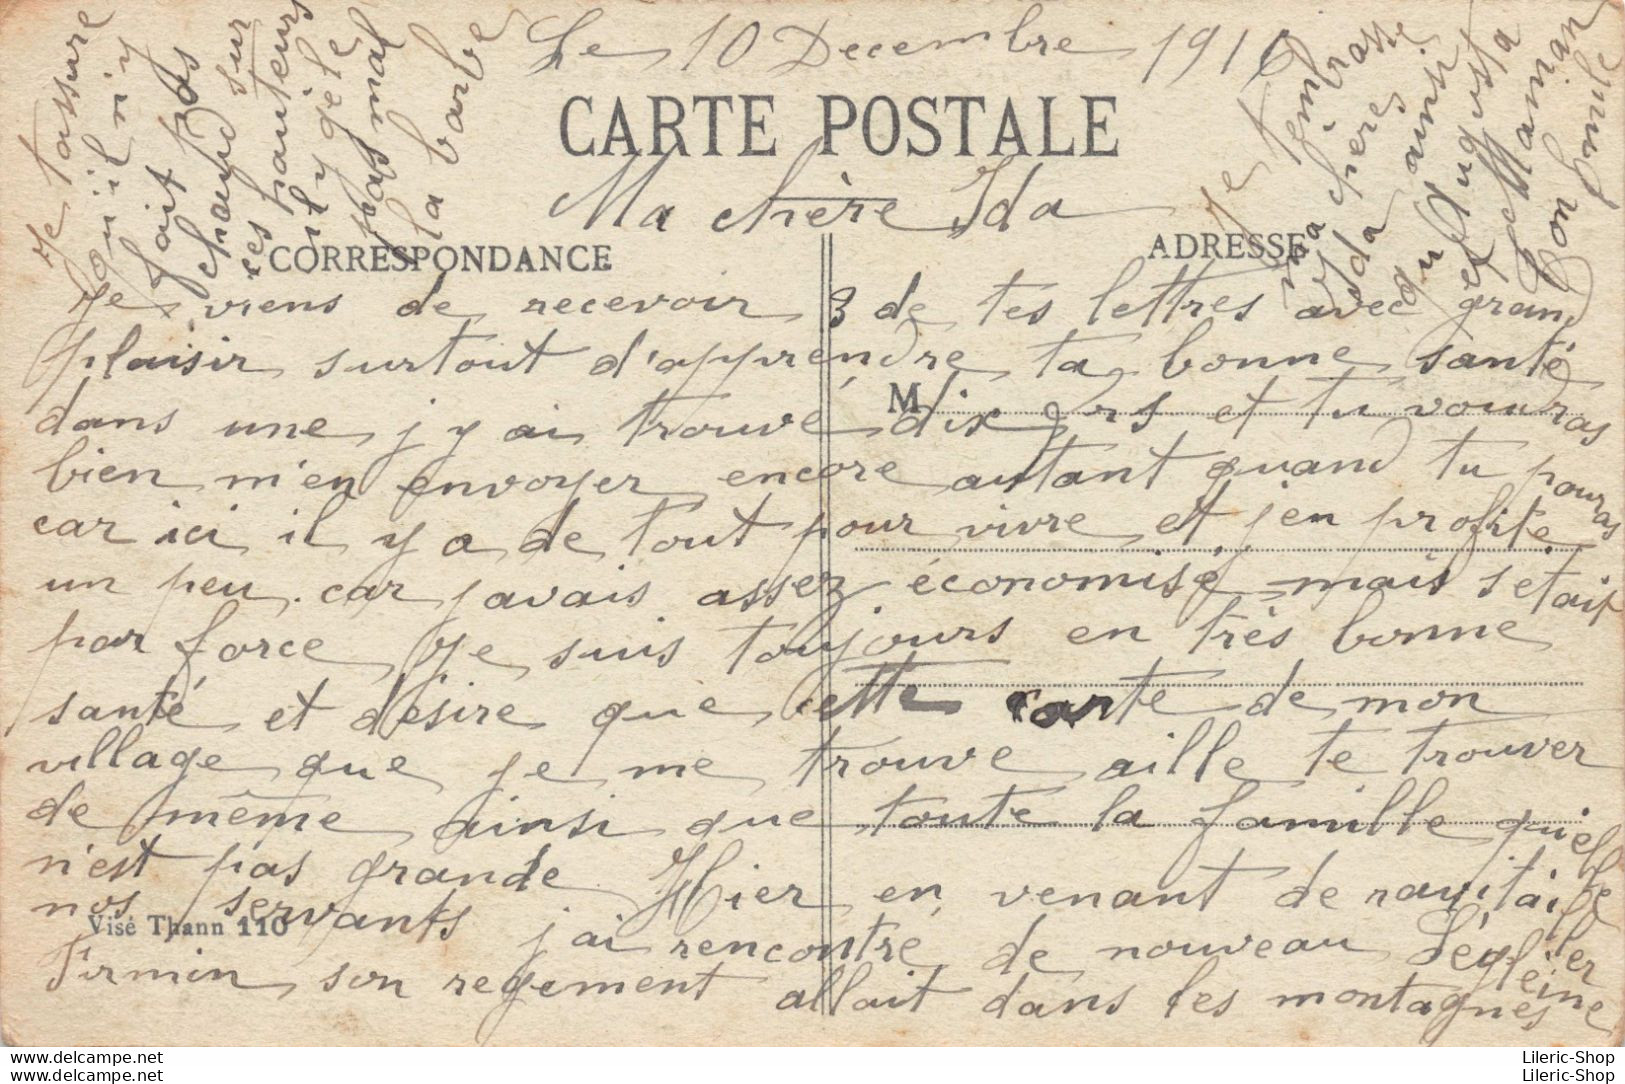 Le 10 Decembre 1916
CARTE POSTALE
Ma chère Ida
CORRESPONDANCE
ADRESSE
Je viens de recevoir 3 de tes lettres avec grand
plaisir surtout d'apprendre ta bonne santé
M
dans une j y ai trouvé dix frs et tu voudras
bien m'en envoyer encore autant quand tu pouras
car ici il y a de tout pour vivre et j'en profite
un peu. car javais assez économisé mais s etait
par force Je suis toujours en très bonne
santé et désire que cette carte de mon
village que je me trouve aille te trouver
de même ainsi que toute la famille qui elle
n'est pas grande Hier en venant de ravitailler
nos servants j'ai rencontré de nouveau Légleine
Visé Thann 110
Firmin son regement allait dans les montagnes
Je tassure
qu'il n'y
fait pas
chaud sur
ces hauteurs
il y gèle
pas mal
la barbe
Je
t'embrasse
ma chère
Ida
ainsi
qu'
Augusta
Maman
ton